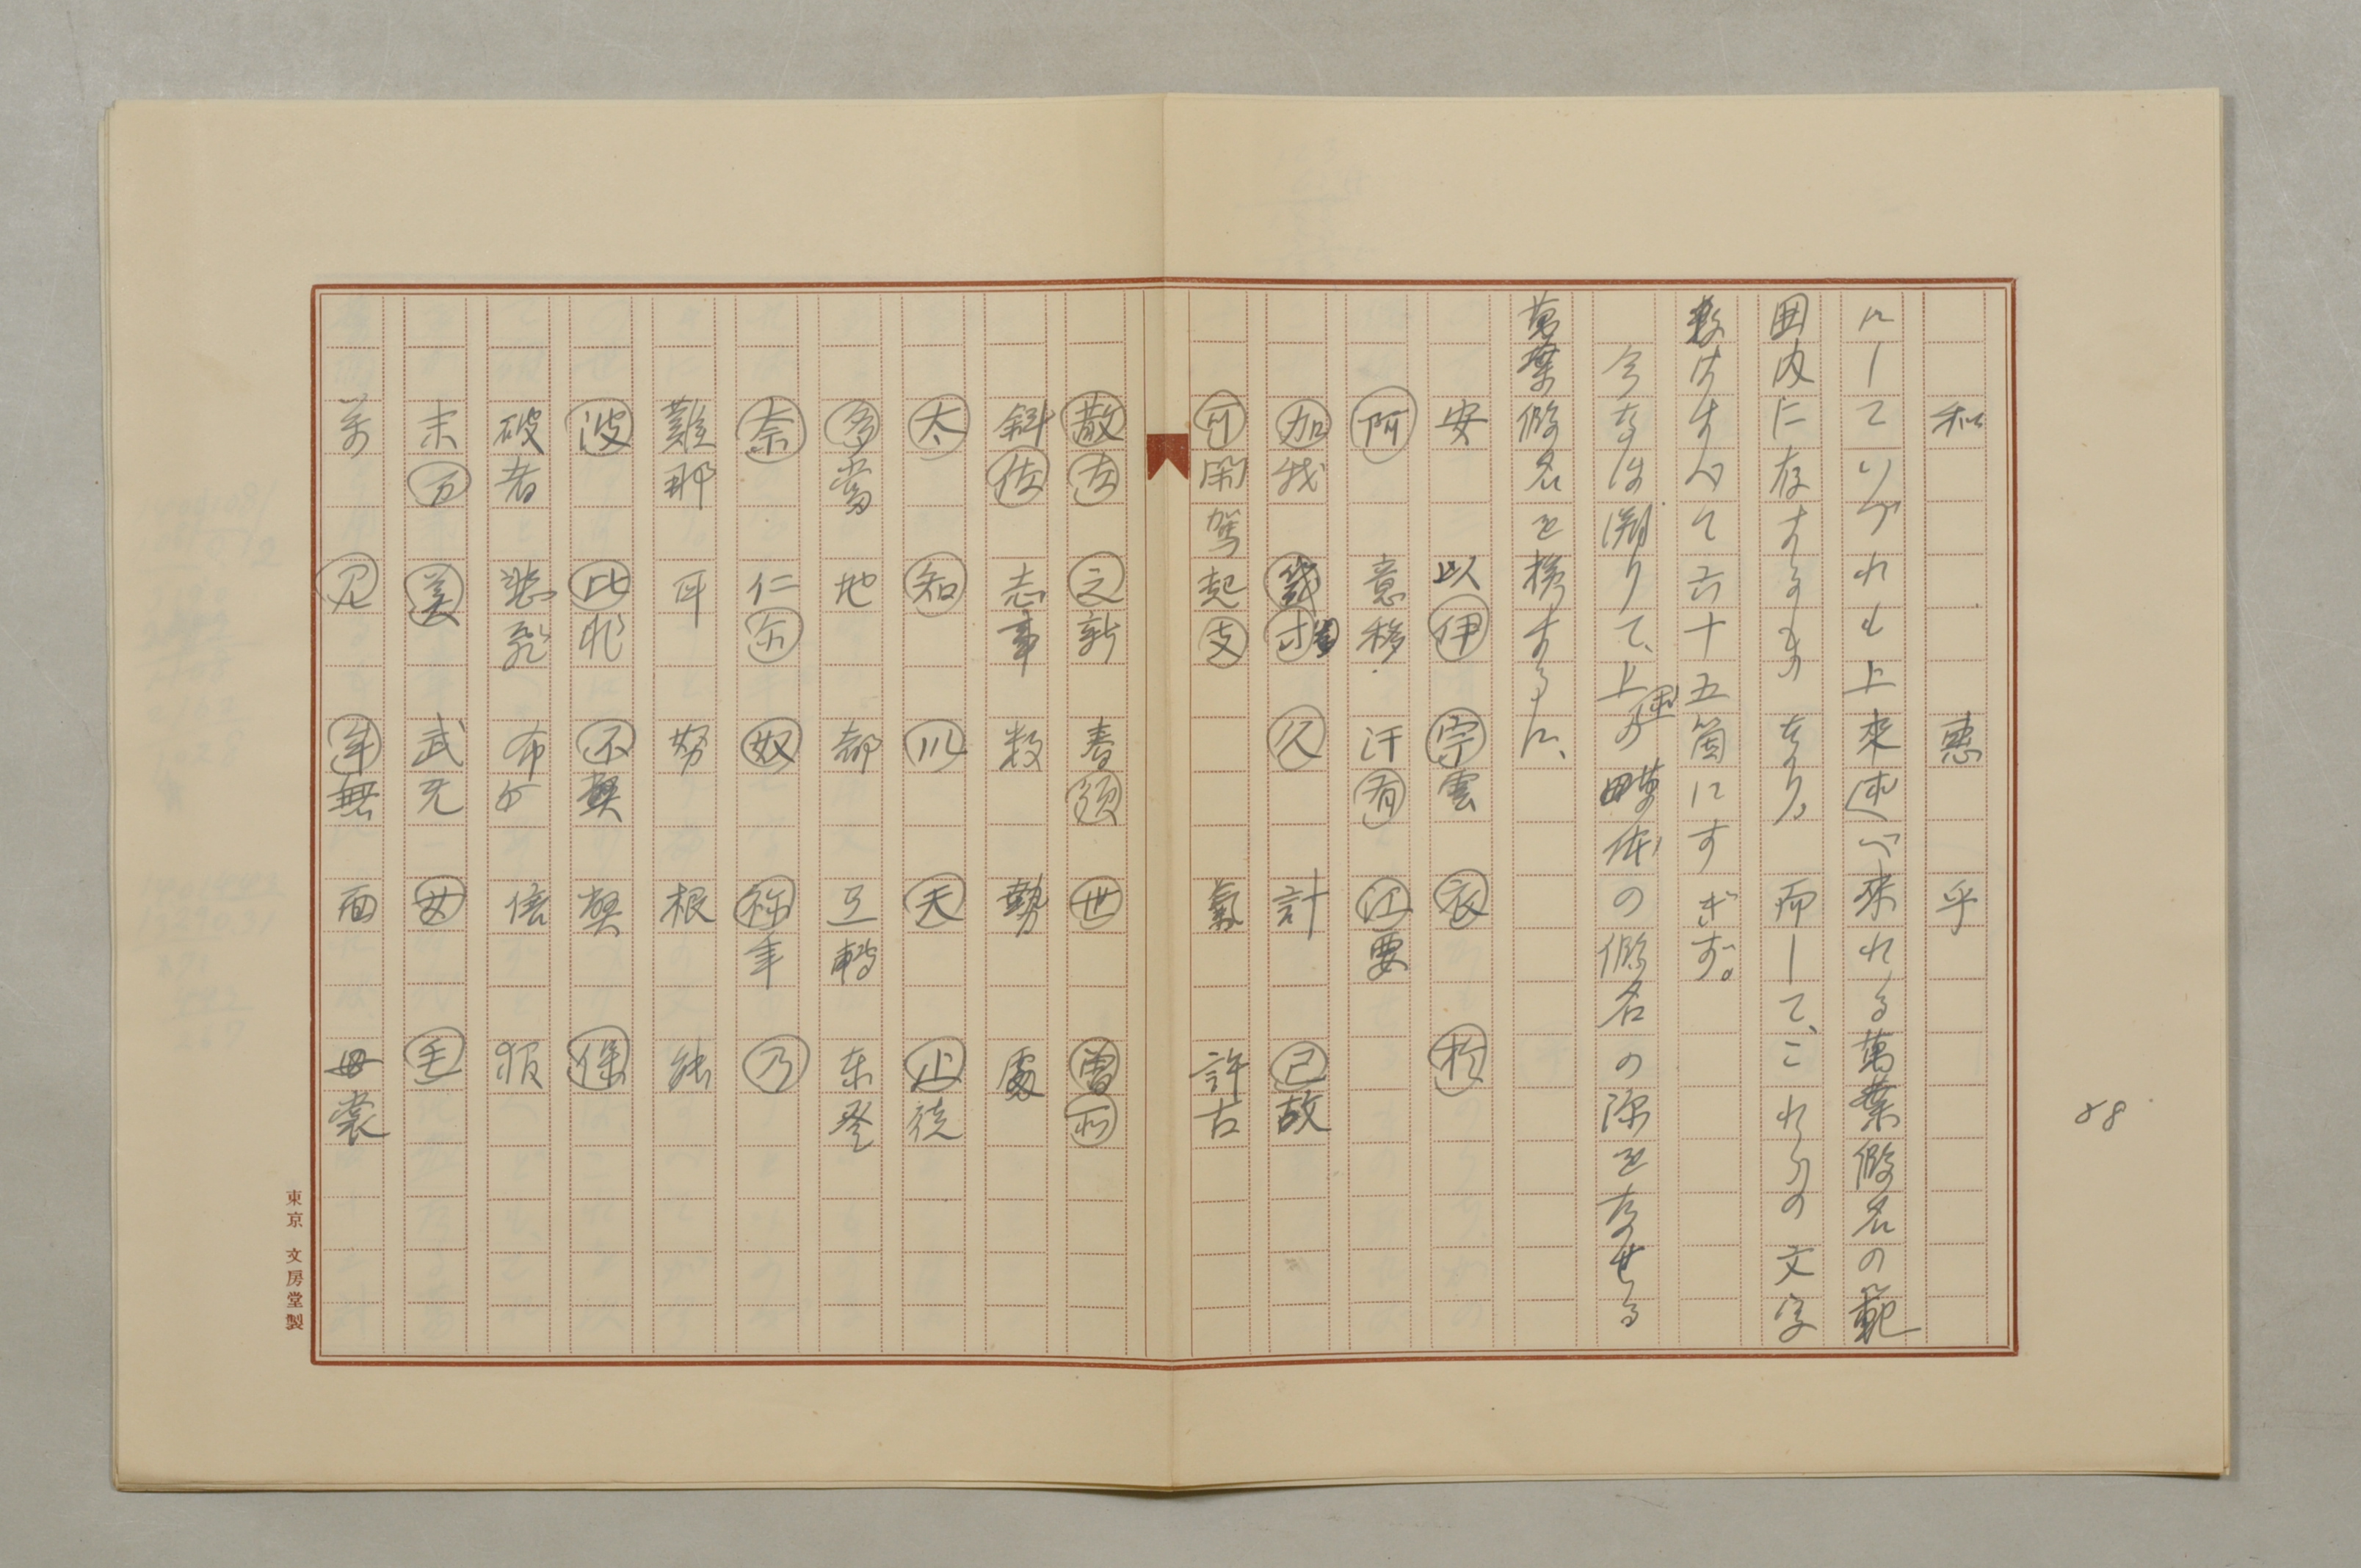 和 惠 乎
にしていづれも上来述べ来れる萬葉假名の範
囲内に存するものなり。而して、これらの文字
数はすべて六十五箇にすぎず。
今なほ溯りて、上の畔本の假名の源をなせる
萬葉假名を検するに、
安 以伊 宇雲 衣 於
阿 意移 汗有 江要
加我 幾寸 久 計 己故
可閑駕 起支 氣 許古
散左 之新 春須 世 曽所
斜佐 志事 数 勢 處
太 知 川 天 止徒
多當 地 都 轉 東登
奈 仁尓 奴 祢年 乃
難那 耳 努 根 能
波 比非 不 保
破者 悲飛 布 倍 報
末万 美 武无 女 毛
萬 見 牟無 面 母裳
88
東京 文房堂製